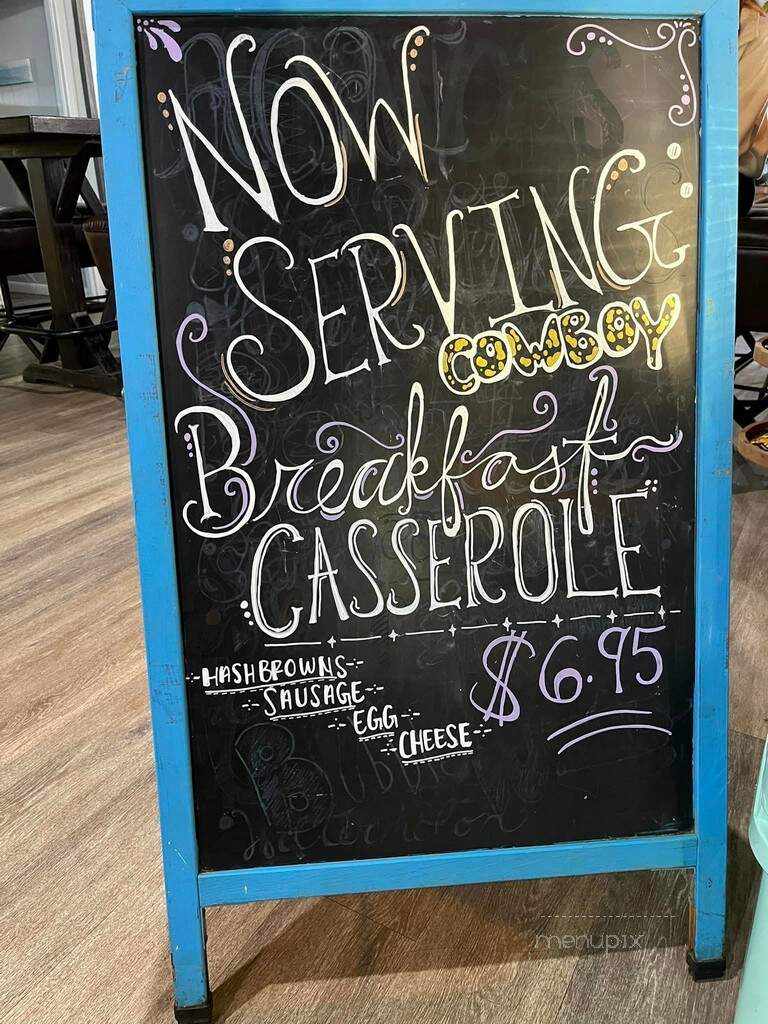 NOW
SERVING
COWBOY
Breakfast
CASSEROLE
HASHBROWNS
SAUSAGE
EGG
CHEESE
$6.95
menupix